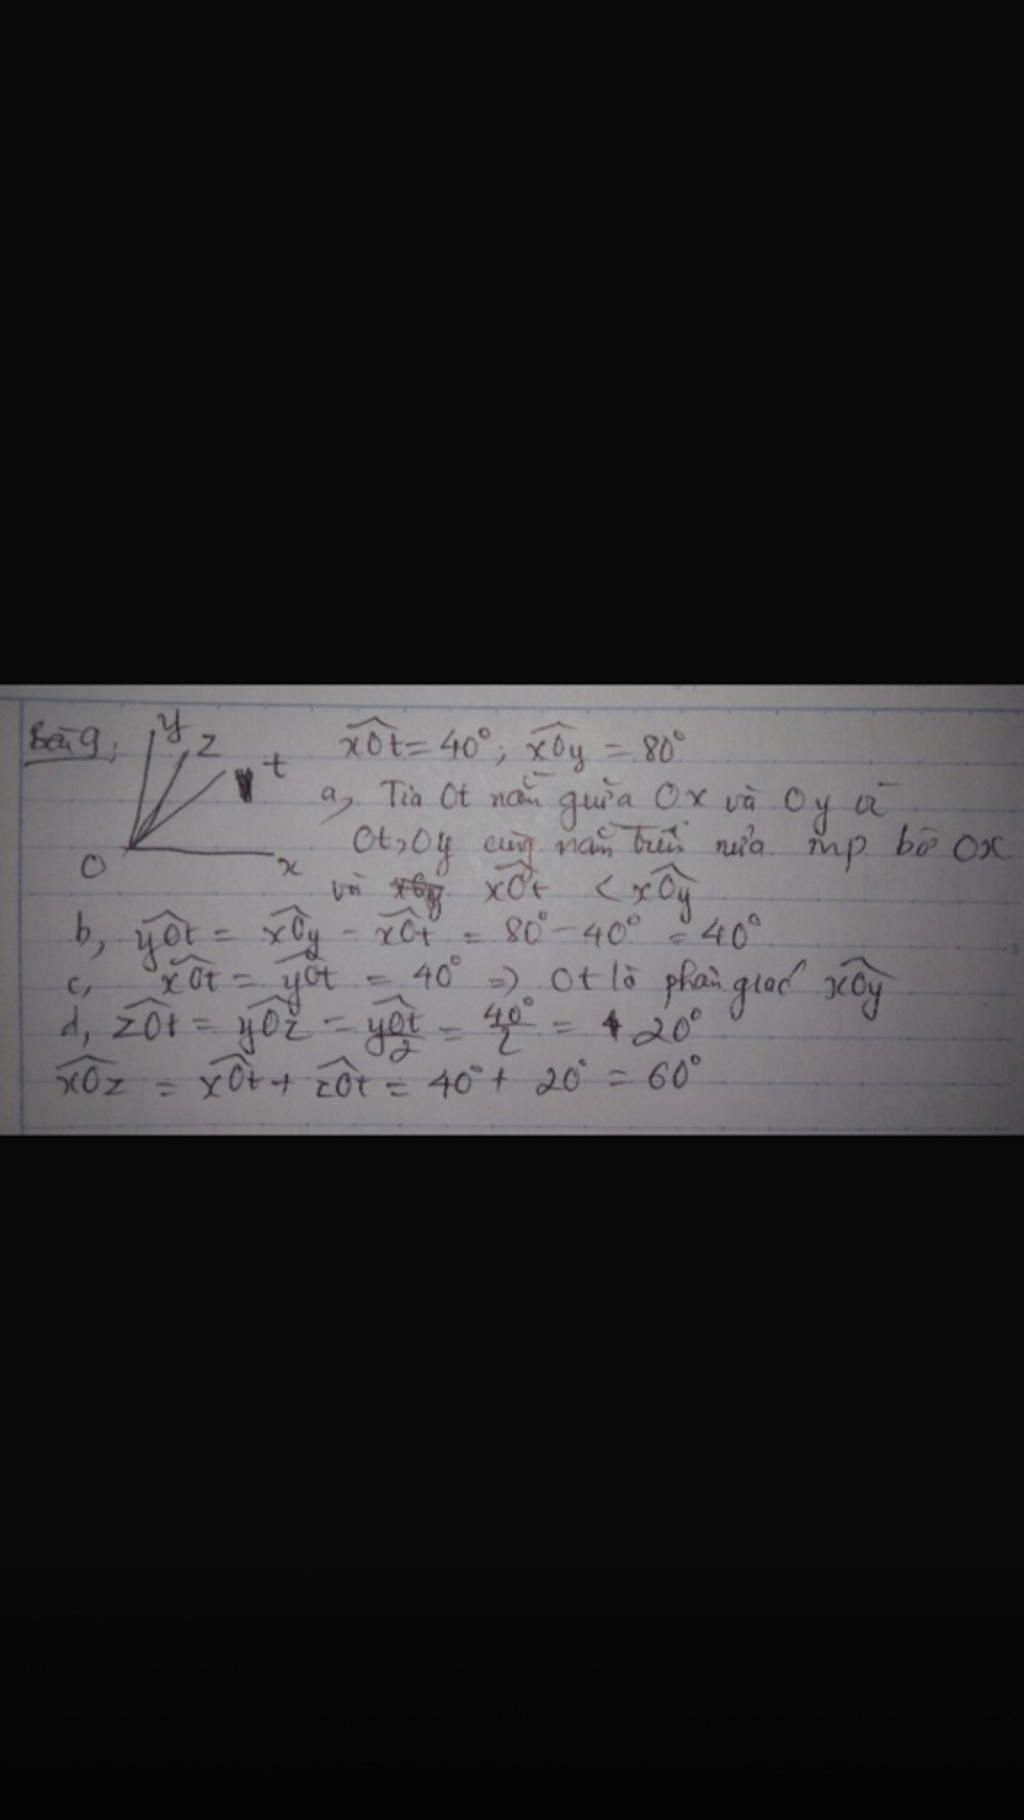 Bài 9;
y
z
t
O
x
xOt = 40°; xOy = 80°
a, Tia Ot nằm giữa Ox và Oy vì
Ot, Oy cùng nằm trên nửa mp bờ Ox
và xOt < xOy
b, yOt = xOy - xOt = 80° - 40° = 40°
c, xOt = yOt = 40° => Ot là phân giác xOy
d, zOt = yOz = yOt/2 = 40°/2 = 20°
xOz = xOt + zOt = 40° + 20° = 60°